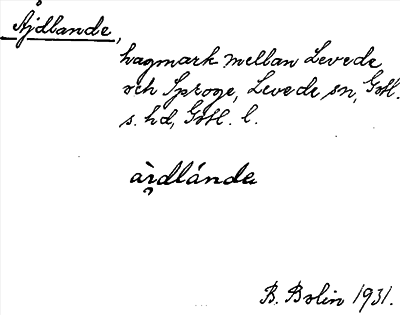 Åjdlande,
hagmark mellan Levede
och Sproge, Levede sn, Gotl.
s. hd, Gotl. l.
àı̯dlánde
B. Bolin 1931.